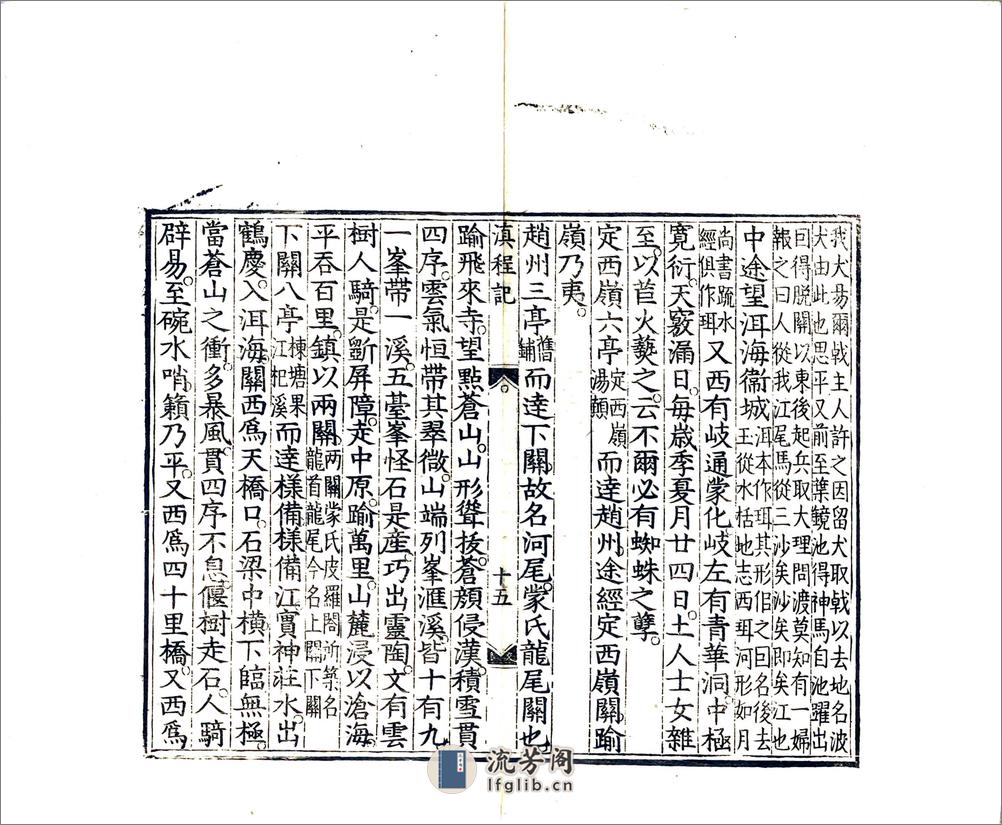 我犬易爾戟主人許之因留犬取戟以去地名波
犬由此也思平又前至葉鏡池得神馬自池躍出
曰得脱關以東後起兵取大理問渡莫知有一婦
報之曰人從我江尾馬從三沙矣沙矣即矣江也
中途望洱海衞城洱本作珥其形佀之曰名後去
玉從水桰地志西珥河形如月
尚書疏水
經俱作珥又西有岐通蒙化岐左有青華洞中極
寛衍天竅漏日毎歳季夏月廿四日土人士女雜
至以苣火爇之云不爾必有蜘蛛之孽
定西嶺六亭定西嶺
湯顛而逹趙州途經定西嶺關踰
嶺乃夷
趙州三亭舊
鋪而逹下關故名河尾蒙氏龍尾關也
滇程記
十五
踰飛來寺望㸃蒼山山形聳拔蒼顔侵漢積雪貫
四序雲氣恒帶其翠㣲山端列峯滙溪皆十有九
一峯帶一溪五臺峯怪石是産巧出靈陶文有雲
樹人騎是斵屏障走中原踰萬里山麓浸以滄海
平吞百里鎮以兩關兩關蒙氏皮羅閤所築名
龍首龍尾今名上關下關
下關八亭楝塘果
江杷溪而逹様備様備江實神莊水出
鶴慶入洱海關西爲天橋口石梁中橫下臨無極
當蒼山之衝多暴風貫四序不息偃樹走石人騎
辟易至碗水哨籟乃平又西爲四十里橋又西爲
流芳阁
lfglib.cn